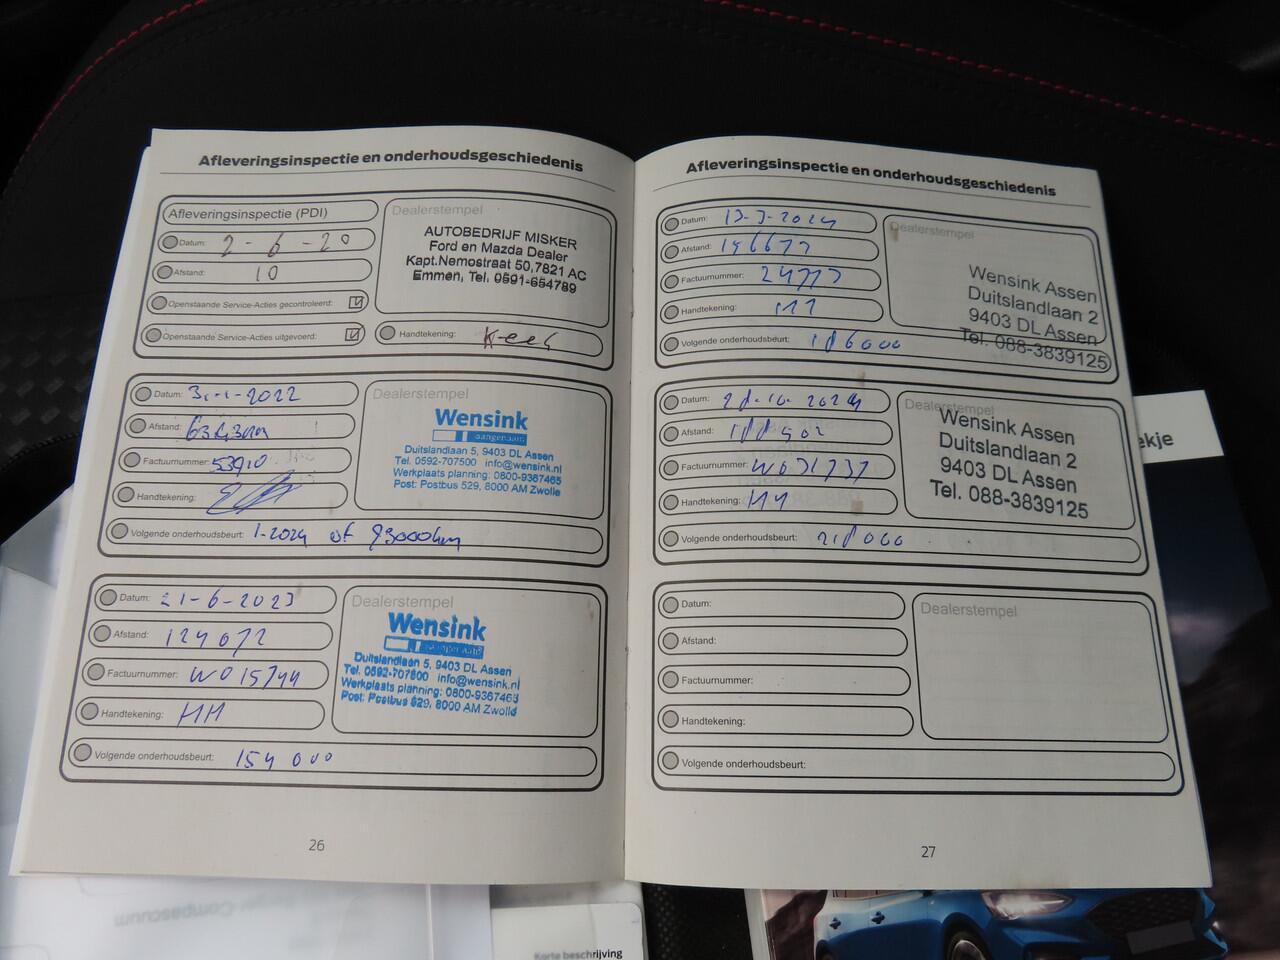 Afleveringsinspectie en onderhoudsgeschiedenis
Afleveringsinspectie (PDI)
Datum: 2-6-20
Afstand: 10
Openstaande Service-Acties gecontroleerd:
Openstaande Service-Acties uitgevoerd:
Dealerstempel
AUTOBEDRIJF MISKER
Ford en Mazda Dealer
Kapt.Nemostraat 50,7821 AC
Emmen, Tel. 0591-654789
Handtekening:
Datum: 31-1-2022
Afstand:
Factuurnummer: 53910
Handtekening:
Volgende onderhoudsbeurt: 1-2024 of 93000km
Dealerstempel
Wensink
aangenaam
Duitslandlaan 5, 9403 DL Assen
Tel. 0592-707500 info@wensink.nl
Werkplaats planning: 0800-9367465
Post: Postbus 529, 8000 AM Zwolle
Datum: 21-6-2023
Afstand: 124072
Factuurnummer: W015744
Handtekening: HH
Volgende onderhoudsbeurt: 154 000
Dealerstempel
Wensink
aangenaam
Duitslandlaan 5, 9403 DL Assen
Tel. 0592-707500 info@wensink.nl
Werkplaats planning: 0800-9367465
Post: Postbus 529, 8000 AM Zwolle
26
Afleveringsinspectie en onderhoudsgeschiedenis
Datum: 13-3-2024
Afstand: 156677
Factuurnummer:
Handtekening:
Volgende onderhoudsbeurt: 186000
Dealerstempel
Wensink Assen
Duitslandlaan 2
9403 DL Assen
Tel. 088-3839125
Datum: 28-10-2024
Afstand: 188902
Factuurnummer: W031737
Handtekening:
Volgende onderhoudsbeurt: 218000
Dealerstempel
Wensink Assen
Duitslandlaan 2
9403 DL Assen
Tel. 088-3839125
Datum:
Afstand:
Factuurnummer:
Handtekening:
Volgende onderhoudsbeurt:
Dealerstempel
27
ekje
Korte beschrijving